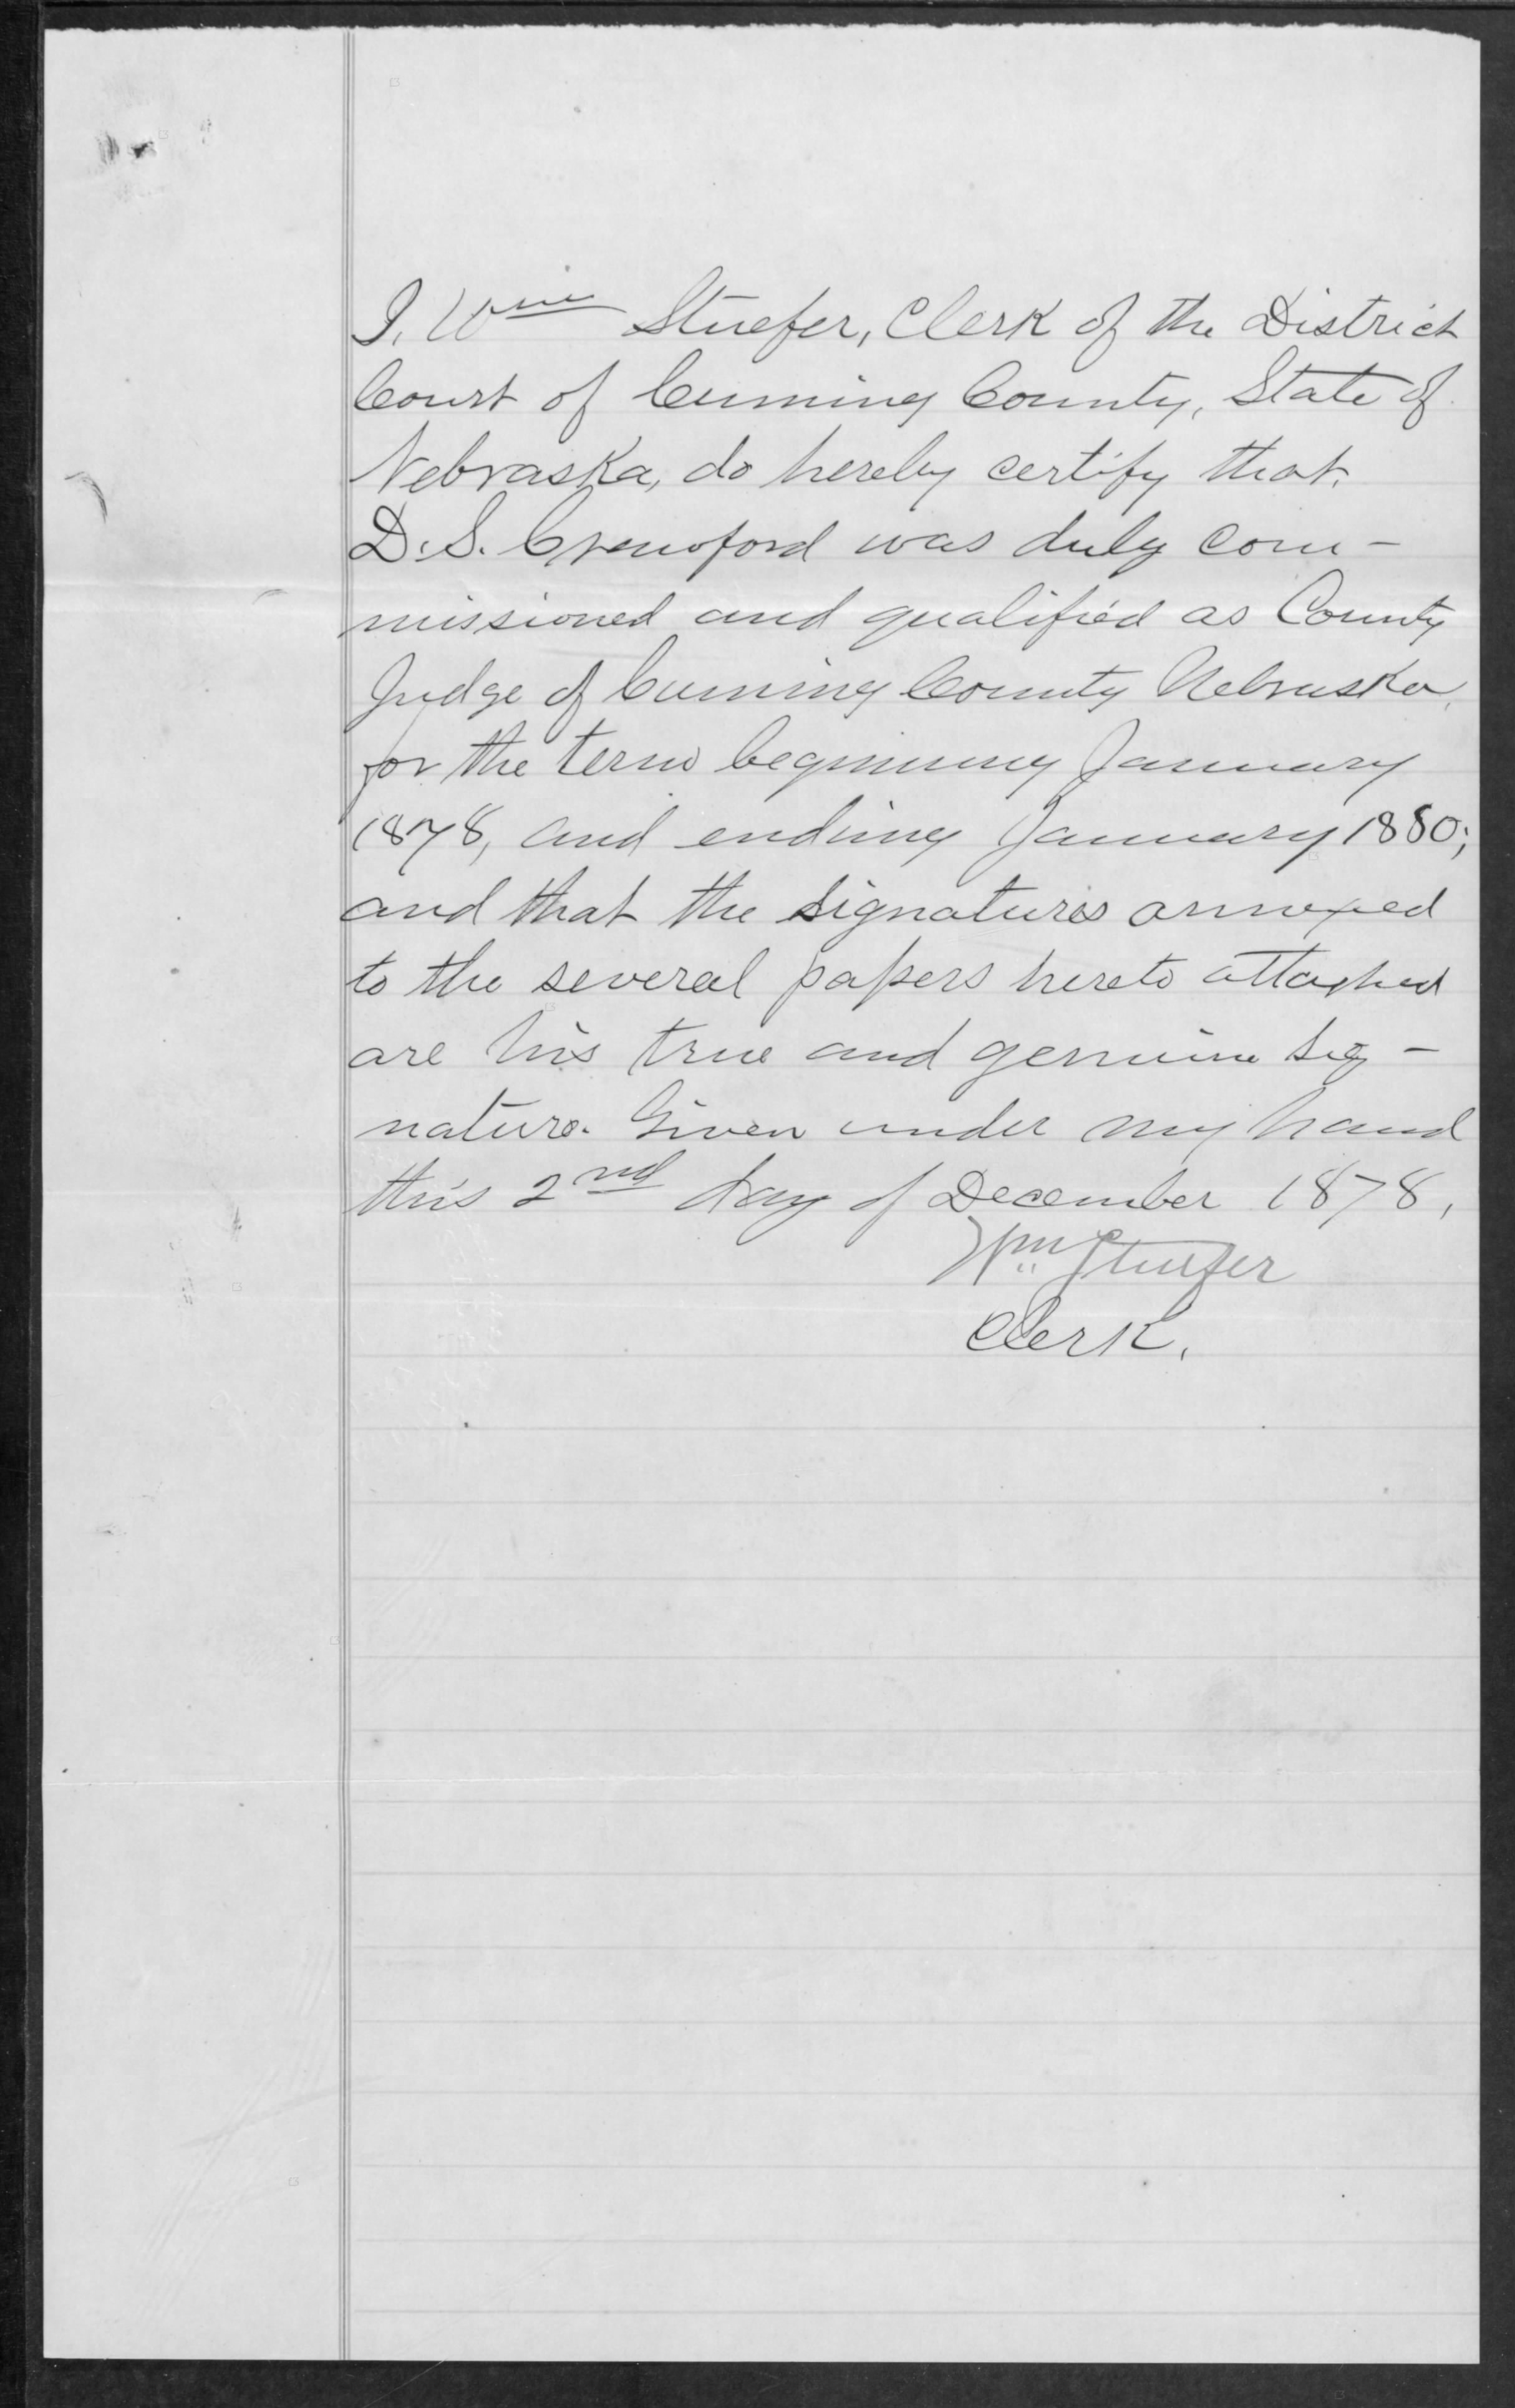 I, Wm Stuefer, Clerk of the District
Court of Cuming County, State of
Nebraska, do hereby certify that
D. S. Crawford was duly com-
missioned and qualified as County
Judge of Cuming County Nebraska,
for the term beginning January
1878, and ending January 1880;
and that the signatures annexed
to the several papers hereto attached
are his true and genuine sig-
nature. Given under my hand
this 2nd day of December 1878,
Wm Stuefer
Clerk.